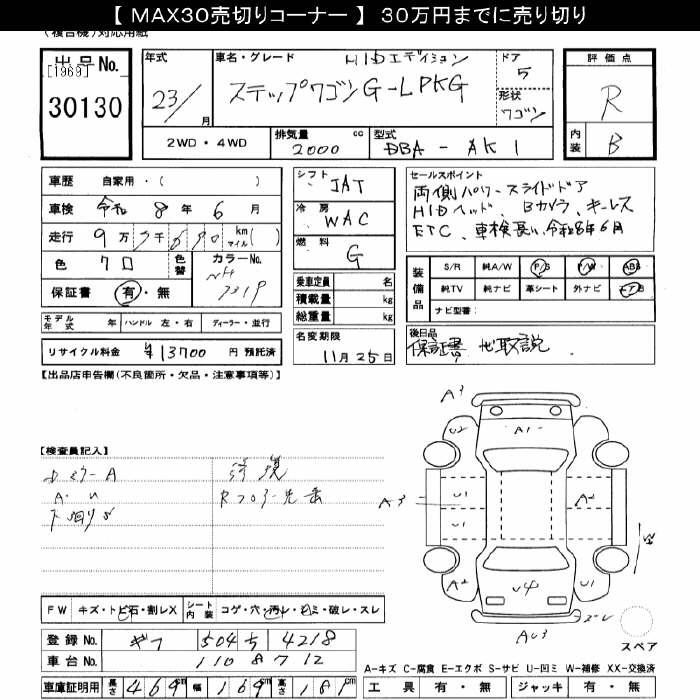 【 MAX30売切りコーナー 】 30万円までに売り切り
(複合機)対応用紙
出品No.
[1969]
30130
年式
23/
月
車名・グレード
HIDエディション
ステップワゴン G-LPKG
ドア
5
形状
ワゴン
2WD・4WD
排気量
2000 cc
型式
DBA - RK1
評価点
R
内装
B
車歴 自家用・( )
車検 令和 8 年 6 月
走行 9万 km マイル ( )
色 クロ 色替 カラーNo.
NH
731P
保証書 有・無
モデル年式 年 ハンドル 左・右 ディーラー・並行
リサイクル料金 ¥13700 円 預託済
シフト IAT
冷房 WAC
燃料 G
乗車定員 名
積載量 kg
総重量 kg
名変期限
11月25日
セールスポイント
両側パワースライドドア
HIDヘッド、Bカメラ、キーレス
ETC、車検長い令和8年6月
装備品
S/R 純A/W P/S P/W ABS
純TV 純ナビ 革シート 外ナビ エアB
ナビ型番:
後日品
保証書 取説
【出品店申告欄(不良箇所・欠品・注意事項等)】
【検査員記入】
A・U
下回りS
修復
Rフロアー先番
A3
U2
A1
A3
U1
U1
A2
W
A2
U4
U1
AU3
スペア
FW キズ・トビ石・割レX シート内装 コゲ・穴・汚レ・シミ・破レ・スレ
登録No. ギフ 504 ち 4218
車台No. 1108712
車庫証明用 長さ 469cm 幅 169cm 高さ 181cm
A─キズ C─腐食 E─エクボ S─サビ U─凹ミ W─補修 XX─交換済
工具 有・無 ジャッキ 有・無